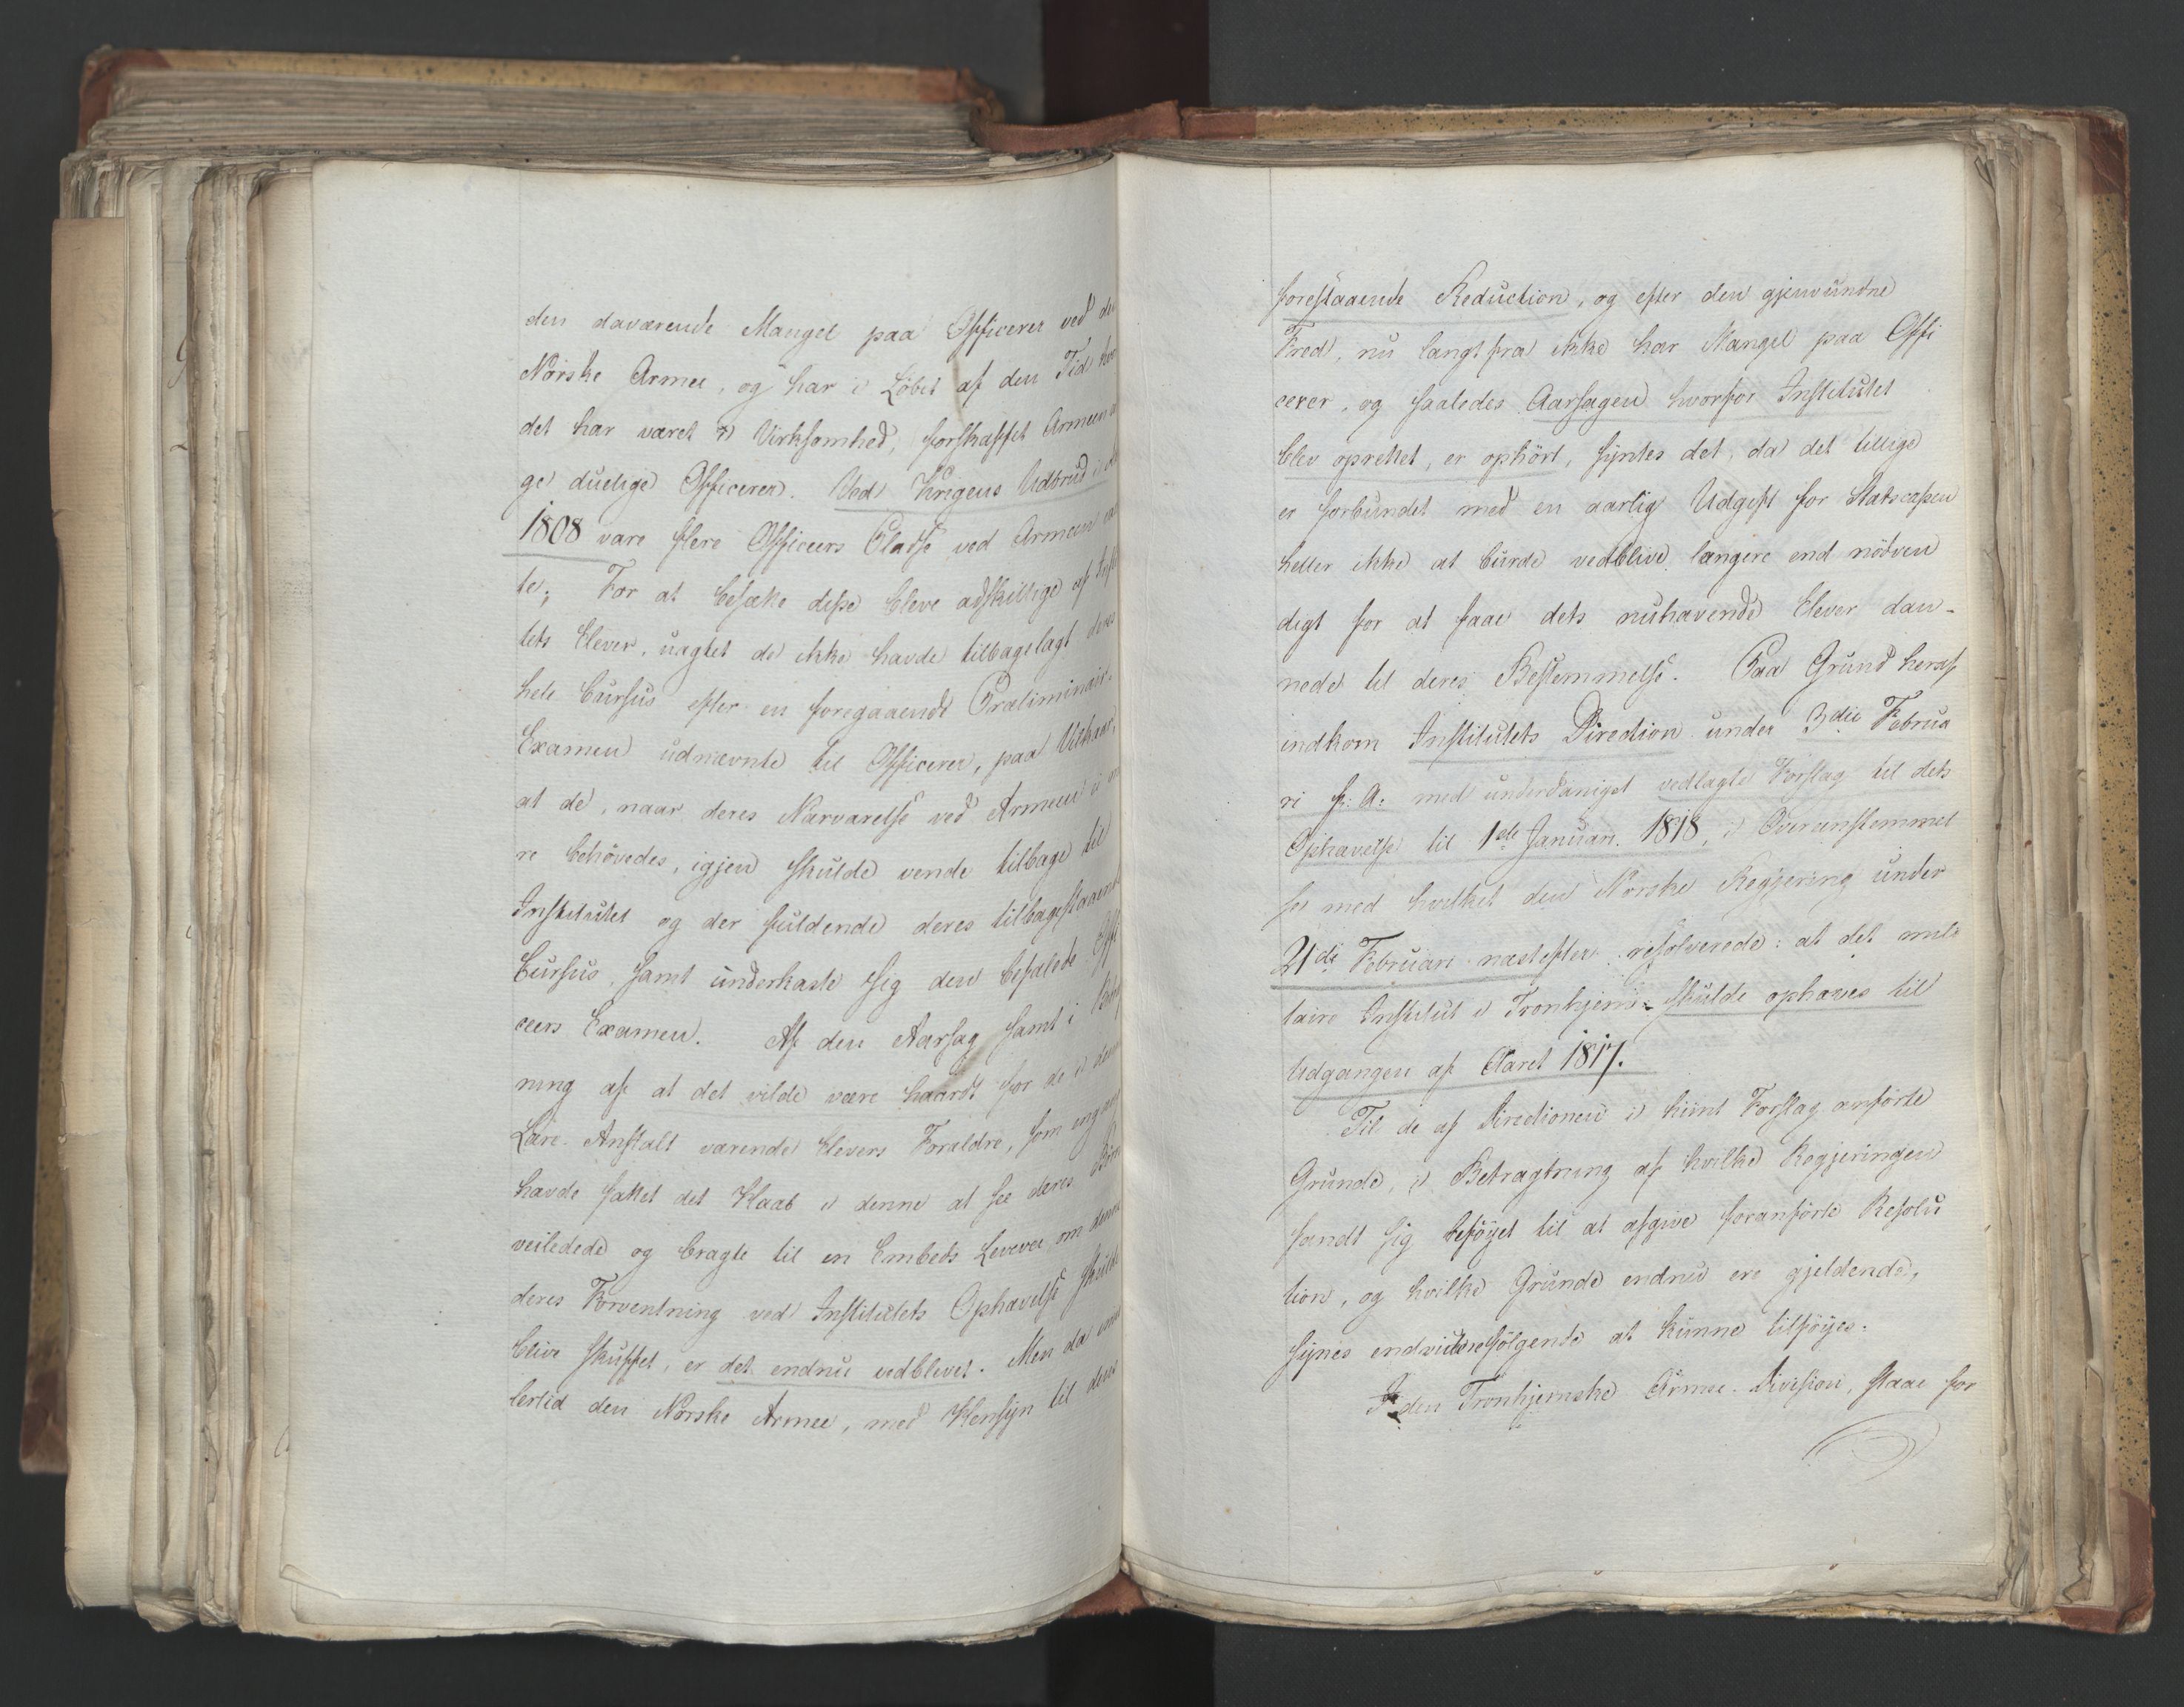 den daværende Mangel paa Officerer ved de
Norske Armee, og har i Löbet af den Tid hvor
det har været i Virksomhed, forskaffet Armeen
ge duelige Officerer. Ved Krigens Udbrud i
1808 vare flere Officeers Pladse ved Armeen
te; For at besætte disse bleve adskillige af
tets Elever, uagtet de ikke havde tilbagelagt deres
hele Cursus efter en foregaaende Præliminair-
Examen udnævnte til Officerer, paa Vilkaar,
at de, naar deres Nærværelse ved Armeen ei
re behövedes, igjen skulde vende tilbage til
Institutet og der fuldende deres tilbagestaaende
Cursus, samt underkaste sig den befalede Offi
ceers Examen. Af den Aarsag samt i
ning af at det vilde være haardt for de i denne
Lære-Anstalt værende Elevers Forældre, som
havde fattet det Haab i denne at see deres Börn
veiledede og bragte til en Embeds Levevei om denne
deres Forventning ved Institutets Ophævelse skulde
blive skuffet, er det endnu vedblevet. Men da
lertid den Norske Armee, med Hensyn til dens
forestaaende Reduction, og efter den gjenvundne
Fred, nu langtfra ikke har Mangel paa Offi
cerer, og saaledes Aarsagen hvorfor Institutet
blev oprettet, er ophört, syntes det, da det tillige
er forbundet med en aarlig Udgift for Statscassen
heller ikke at burde vedblive længere end nödven
digt for at faae dets nuhavende Elever dan-
nede til deres Bestemmelse. Paa Grund heraf
indkom Institutets Direction under 3die Februa
ri f: A: med underdanigst vedlagte Forslag til dets
Ophævelse til 1ste Januari 1818, i Overensstemmel
se med hvilket den Norske Regjering under
21de Februari næstefter resolverede: at det mili
taire Institut i Tronhjem skulde ophæves til
Udgangen af Aaret 1817.
Til de af Directionen i hiint Forslag anförte
Grunde, i Betragtning af hvilke Regjeringen
fandt sig beföyet til at afgive foranförte Resolu
tion, og hvilke Grunde endnu ere gjeldende,
synes endvidere fölgende at kunne tilföyes:
I den Tronhjemske Armee-Division, staae for